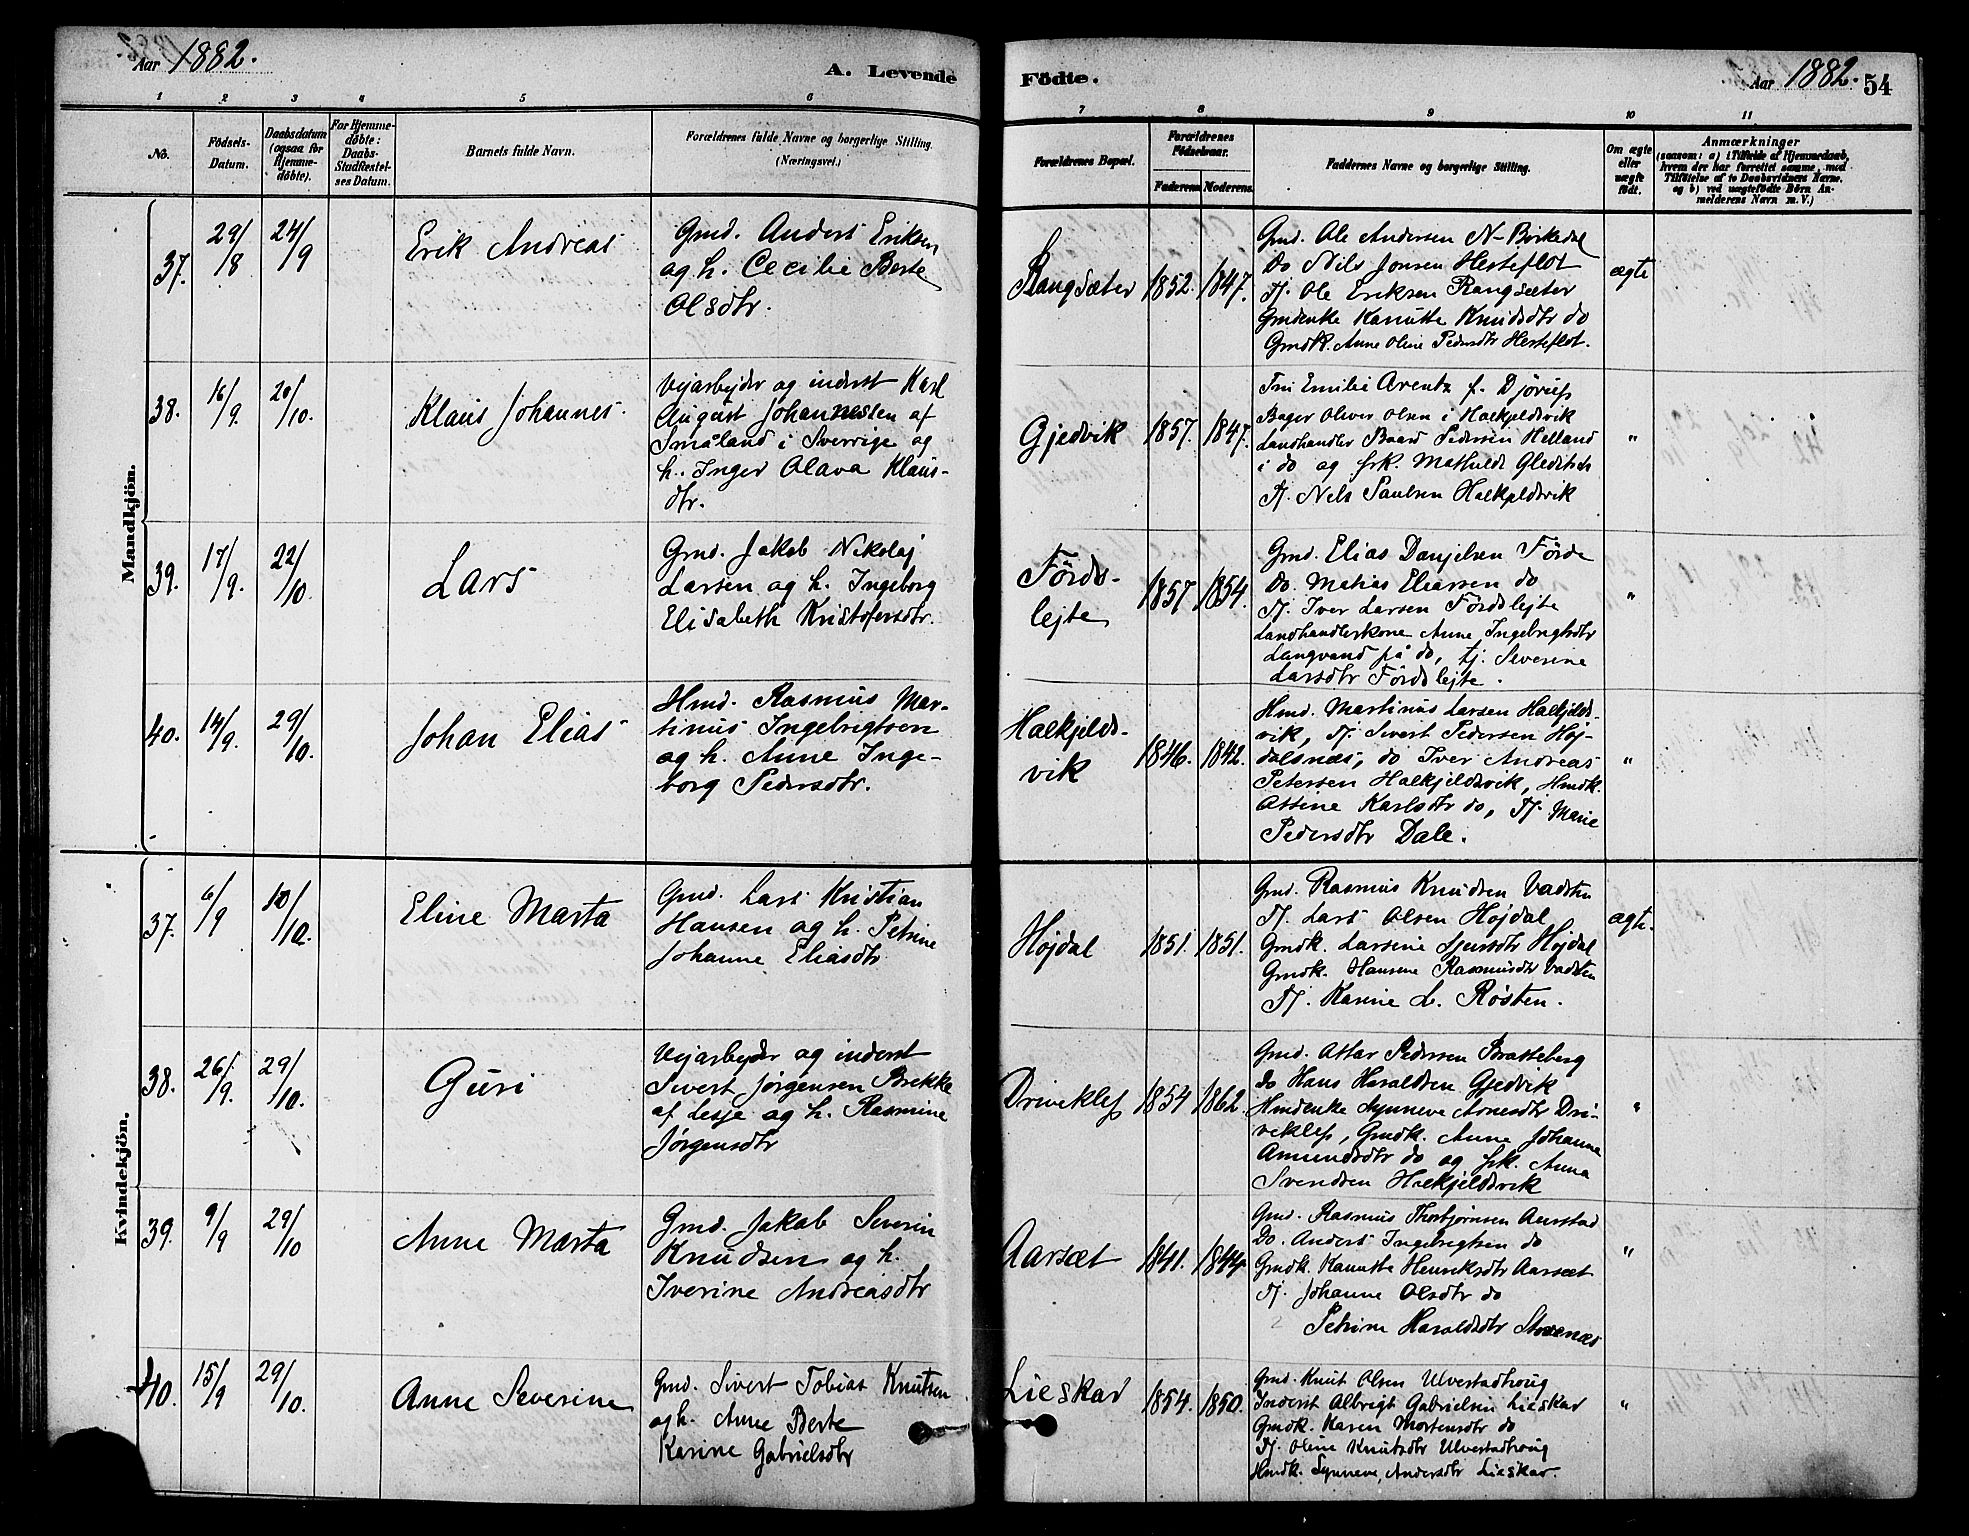 Aar 1882.
A. Levende
Födte.
Aar 1882.
54
1 2 3 4 5 6
7 8 9 10 11
No.
Födsels-
Datum.
Daabsdatum
(ogsaa for
Hjemme-
döbte).
For Hjemme-
döbte:
Daabs-
Stadfæstel-
ses Datum.
Barnets fulde Navn.
Forældrenes fulde Navne og borgerlige Stilling.
(Næringsvei.)
Forældrenes Bopæl.
Forældrenes
Födselsaar.
Faderens. Moderens.
Faddernes Navne og borgerlige Stilling.
Om ægte
eller
uægte
födt.
Anmærkninger
(saasom: a) i Tilfælde af Hjemmedaab,
hvem der har forrettet samme, med
Tilföielse af to Daabsvidners Navne,
og b) ved uægtefödte Börn An-
melderens Navn m. V.)
Mandkjön.
37.
29/8
24/9
Erik Andreas
Gmd. Anders Eriksen
og h. Cecilie Berte
Olsdtr.
Rangsæter
1852.
1847.
Gmd. Ole Andersen N-Birkedal
Do Nils Jonsen Hesteflot
Tj. Ole Eriksen Rangsæter
Gmdenke Kanutte Knudsdtr do
Gmdk. Anne Oline Pedersdtr Hesteflot.
ægte
38.
16/9.
20/10.
Klaus Johannes.
Vejarbejder og inderst Karl
August Johannesen af
Småland i Sverrige og
h. Inger Olava Klaus-
dtr.
Gjedvik
1857.
1847.
Fru Emilie Arentz f. Djørup
Bager Oliver Olsen i Halkjeldsvik
Landhandler Baard Pedersen Helland
i do og frk. Mathilde Gleditsch
Tj. Nels Paulsen Halkjeldsvik
"
39.
17/9.
22/10.
Lars
Gmd. Jakob Nikolaj
Larsen og h. Ingeborg
Elisabeth Kristofersdtr.
Förds-
lejte
1857
1854.
Gmd. Elias Danjelsen Förde
Do. Matias Eliassen do
Tj. Iver Larsen Fördslejte
Landhandlerkone Anne Ingebrigtsdtr
Langvand på do, tj. Severine
Larsdtr Fördslejte.
"
40.
14/9.
29/10.
Johan Elias
Hmd. Rasmus Mar-
tinus Ingebrigtsen
og h. Anne Inge-
borg Pedersdtr.
Halkjelds-
vik
1846.
1842.
Hmd. Martinus Larsen Halkjelds-
vik, Tj. Sivert Pedersen Høj-
dalsnæs, do Iver Andreas
Petersen Halkjeldsvik, Hmdk.
Assine Karlsdtr do, Tj. Marie
Pedersdtr Dale.
"
Kvindekjön.
37.
6/9
10/10.
Eline Marta
Gmd. Lars Kristian
Hansen og h. Petrine
Johanne Eliasdtr
Højdal
1851.
1851.
Gmd. Rasmus Knudsen Vadsten
Tj. Lars Olsen Højdal
Gmdk. Larsine Sjursdtr Højdal
Gmdk. Hansine Rasmusdtr Vadsten
Tj. Karine L. Røsten.
ægte.
38.
26/9.
29/10.
Guri
Vejarbejder og inderst
Sivert Jørgensen Brekke
af Lesje og h. Rasmine
Jørgensdtr
Driveklep
1854
1862.
Gmd. Attar Pedersen Bratteberg
do Hans Haraldsen Gjedvik
Hmdenke Synneve Arnesdtr Dri-
veklep, Gmdk. Anne Johanne
Amundsdtr do og frk. Anna
Svendsen Halkjeldsvik
"
39.
9/9
29/10
Anne Marta
Gmd. Jakob Severin
Knudsen og h.
Iverine Andreasdtr
Aarsæt
1841.
1844
Gmd. Rasmus Thorbjørnsen Aarstad
Do. Anders Ingebrigtsen do
Gmdk. Kanutte Henriksdtr Aarsæt
Tj. Johanne Olsdtr do
Petrine Haraldsdtr
"
40.
15/9
29/10.
Anne Severine
Gmd. Sivert Tobias Knutsen
og h. Anne Berte
Karine Gabrielsdtr
Lieskar
1854.
1850.
Gmd. Knut Olsen Ulvestadhoug
Inderst Albrigt Gabrielsen Lieskar
Gmdk. Karen Mortensdtr do
Tj. Oline Knutsdtr Ulvestadhoug
Hmdk. Synneve Andersdtr Lieskar.
"